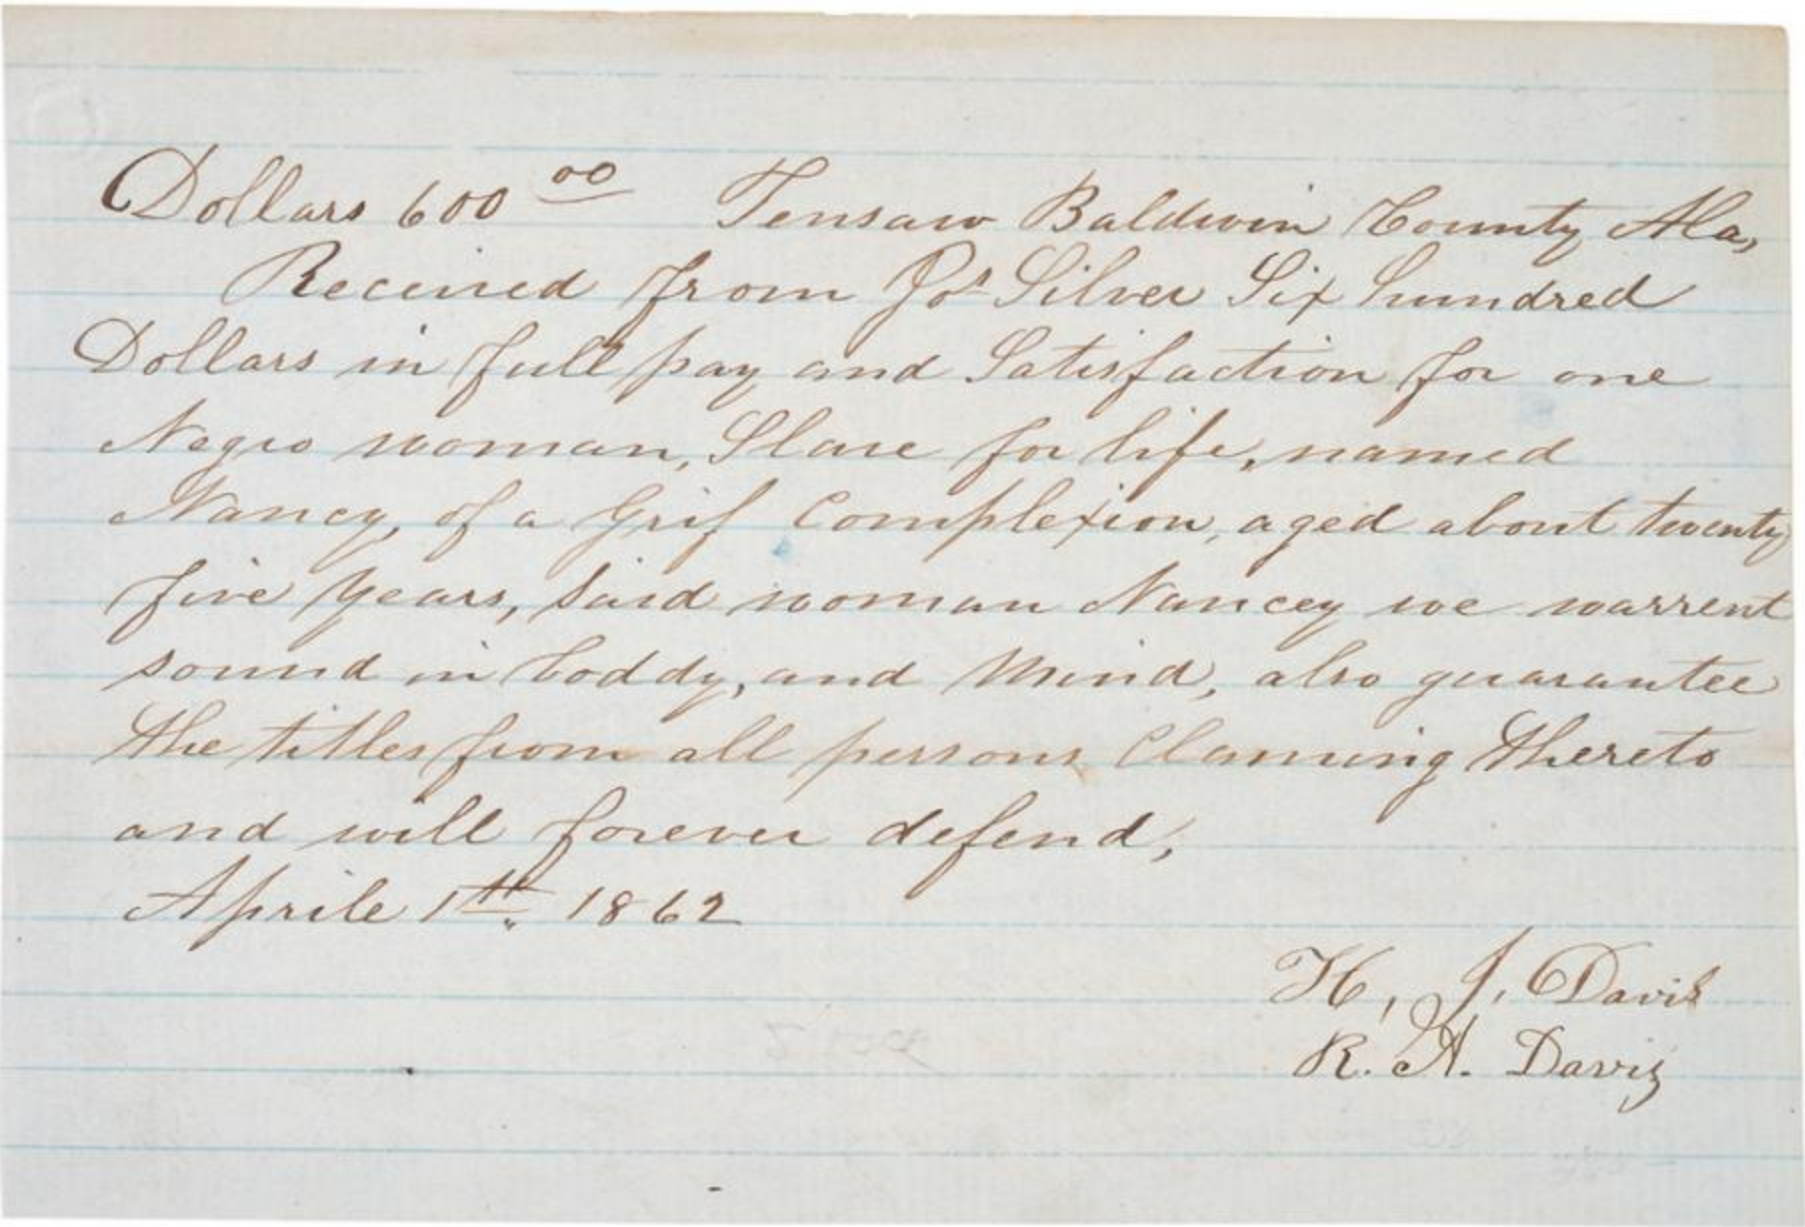 Dollars 600 00 Tensaw Baldwin County Ala,
Received from Jos Silver Six hundred
Dollars in full pay and Satisfaction for one
Negro woman, Slave for life, named
Nancy, of a Grif Complexion, aged about twenty
five years, Said woman Nancey we warrent
sound in boddy, and Mind, also guarantee
the titles from all persons Claming thereto
and will forever defend,
Aprile 1th 1862
H, J. Davis
R. A. Davis